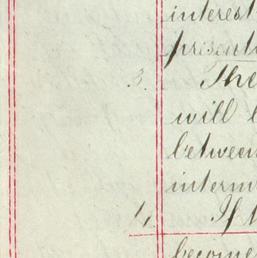 interest
present
3. The
will b
between
interm
4. If t
become